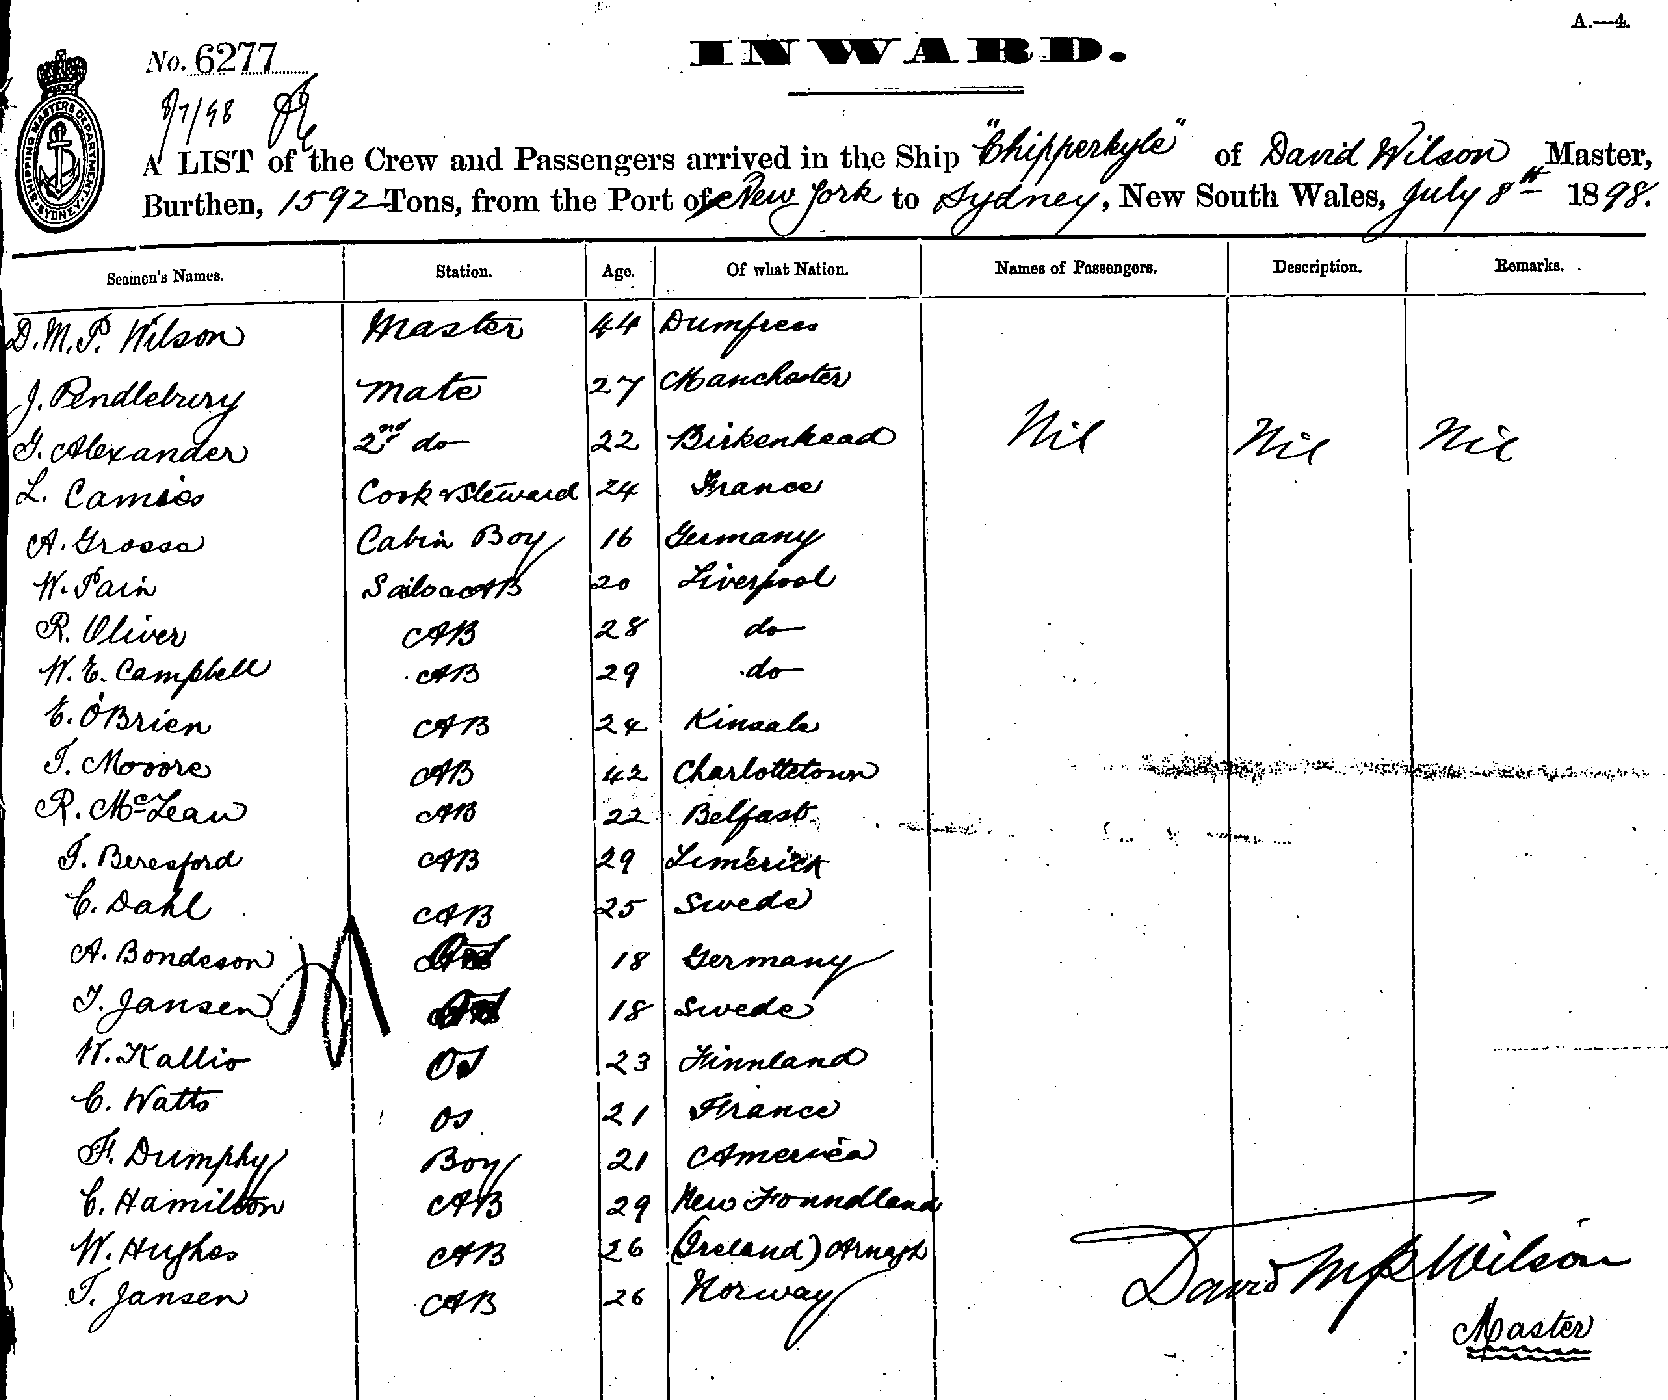 A.—4.
No. 6277
INWARD.
8/7/98
SHIPPING MASTERS DEPARTMENT SYDNEY
A LIST of the Crew and Passengers arrived in the Ship "Chipperkyle" of David Wilson Master,
Burthen, 1592 Tons, from the Port of New York to Sydney, New South Wales, July 8th 1898.
Seamen's Names. Station. Age. Of what Nation. Names of Passengers. Description. Remarks.
D. M. P. Wilson Master 44 Dumfrees
J. Pendlebury Mate 27 Manchester
G. Alexander 2nd do 22 Birkenhead Nil Nil Nil
L. Camies Cook & Steward 24 France
A. Grossa Cabin Boy 16 Germany
W. Pain AB 20 Liverpool
R. Oliver AB 28 do
W. E. Campbell AB 29 do
E. O'Brien AB 24 Kinsale
T. Mooore AB 42 Charlottetown
R. McLean AB 22 Belfast
T. Beresford AB 29 Limerick
C. Dahl AB 25 Swede
A. Bondeson 18 Germany
T. Jansen 18 Swede
W. Kallio OS 23 Finnland
C. Watts OS 21 France
F. Dumphy Boy 21 America
C. Hamilton AB 29 New Foundland
W. Hughes AB 26 (Ireland) Armagh
T. Jansen AB 26 Norway
David M P Wilson
Master